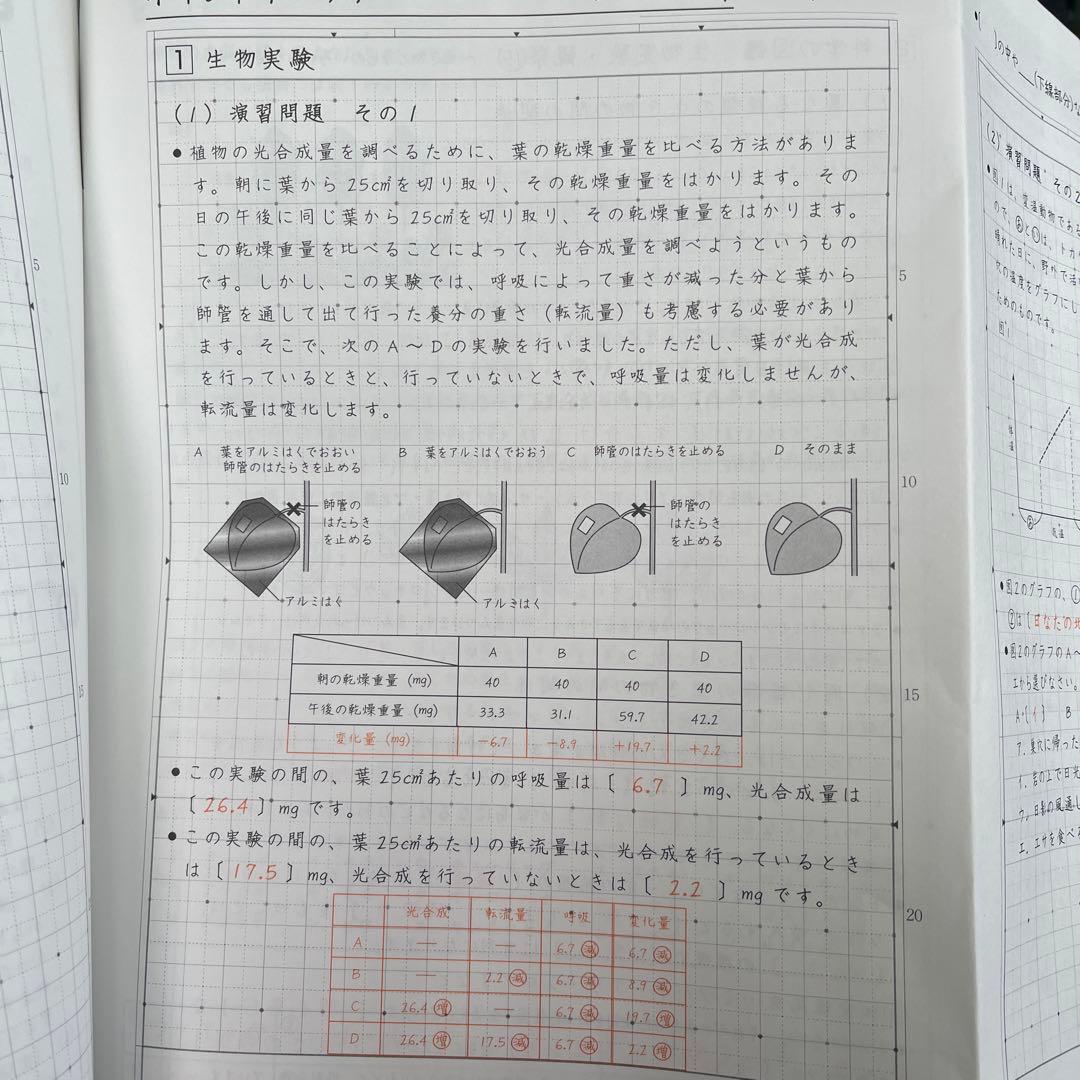 1 生物実験
(1) 演習問題 その1
●植物の光合成量を調べるために、葉の乾燥重量を比べる方法がありま
す。朝に葉から25c㎡を切り取り、その乾燥重量をはかります。その
日の午後に同じ葉から25c㎡を切り取り、その乾燥重量をはかります。
この乾燥重量を比べることによって、光合成量を調べようというもの
です。しかし、この実験では、呼吸によって重さが減った分と葉から
師管を通して出て行った養分の重さ(転流量)も考慮する必要があり
ます。そこで、次のA〜Dの実験を行いました。ただし、葉が光合成
を行っているときと、行っていないときで、呼吸量は変化しませんが、
転流量は変化します。
A 葉をアルミはくでおおい
師管のはたらきを止める
B 葉をアルミはくでおおう
C 師管のはたらきを止める
D そのまま
師管の
はたらき
を止める
アルミはく
アルミはく
師管の
はたらき
を止める
A B C D
朝の乾燥重量(mg) 40 40 40 40
午後の乾燥重量(mg) 33.3 31.1 59.7 42.2
変化量(mg) −6.7 −8.9 +19.7 +2.2
●この実験の間の、葉25c㎡あたりの呼吸量は〔 6.7 〕mg、光合成量は
〔26.4〕mgです。
●この実験の間の、葉25c㎡あたりの転流量は、光合成を行っているとき
は〔17.5〕mg、光合成を行っていないときは〔 2.2 〕mgです。
光合成 転流量 呼吸 変化量
A — — 6.7減 6.7減
B — 2.2減 6.7減 8.9減
C 26.4増 — 6.7減 19.7増
D 26.4増 17.5減 6.7減 2.2増
5
10
15
20
5
10
15
)の中や (下線部分)
(2) 演習問題 その2
●図1は、変温動物である
晴れた日に、野外で活
の温度をグラフにし
ためのものです。
図1
体温
気温
●図2のグラフの、①
②は〔日なたの地
●図2のグラフのA〜
エから選びなさい。
A・〔イ〕 B
ア. 巣穴に帰った
イ. 岩の上で日光
ウ. 日影の風通し
エ. エサを食べ